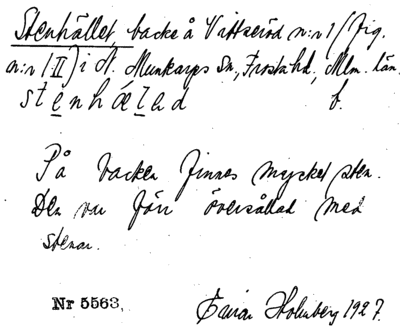 Stenhället, backe å Vittseröd n:r 1 (fig.
n:r 1 II) i N. Munkarps sn., Frosta hd., Mlm. län.
stenhäləd b.
På backen finnes mycket sten.
Den var förr översållad med
stenar.
Nr 5563. Holmberg 1927.